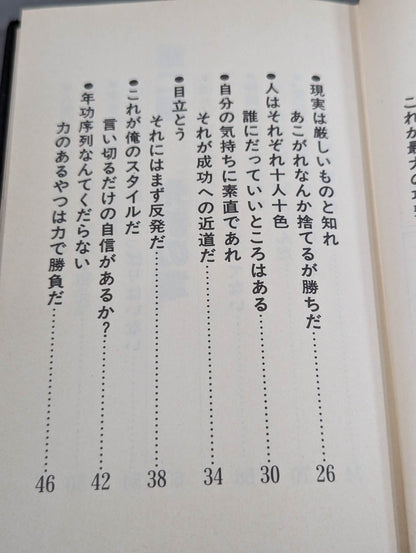 これが最大の
●現実は厳しいものと知れ
あこがれなんか捨てるが勝ちだ……………… 26
●人はそれぞれ十人十色
誰にだっていいところはある……………… 30
●自分の気持ちに素直であれ
それが成功への近道だ……………… 34
●目立とう
それにはまず反発だ……………… 38
●これが俺のスタイルだ
言い切るだけの自信があるか？……………… 42
●年功序列なんてくだらない
力のあるやつは力で勝負だ……………… 46